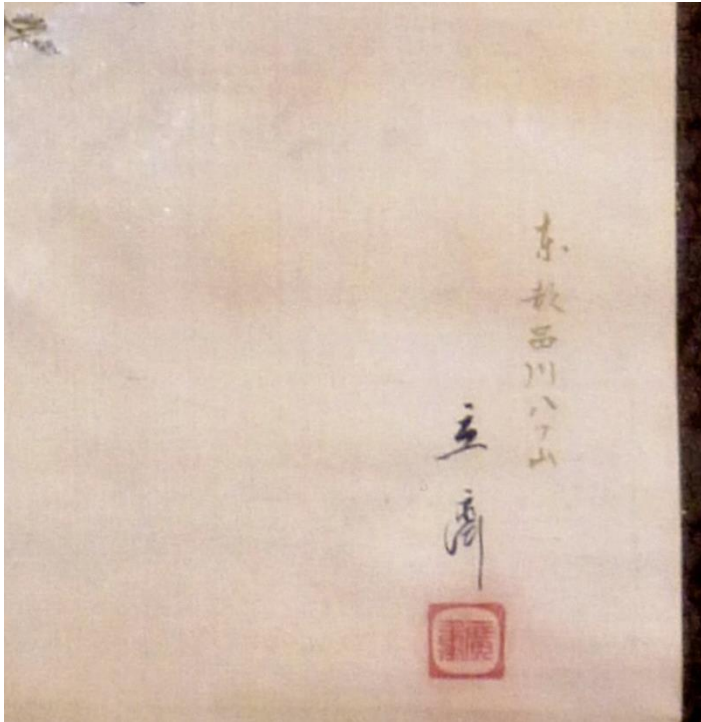 東都品川八ツ山
立齋
廣重